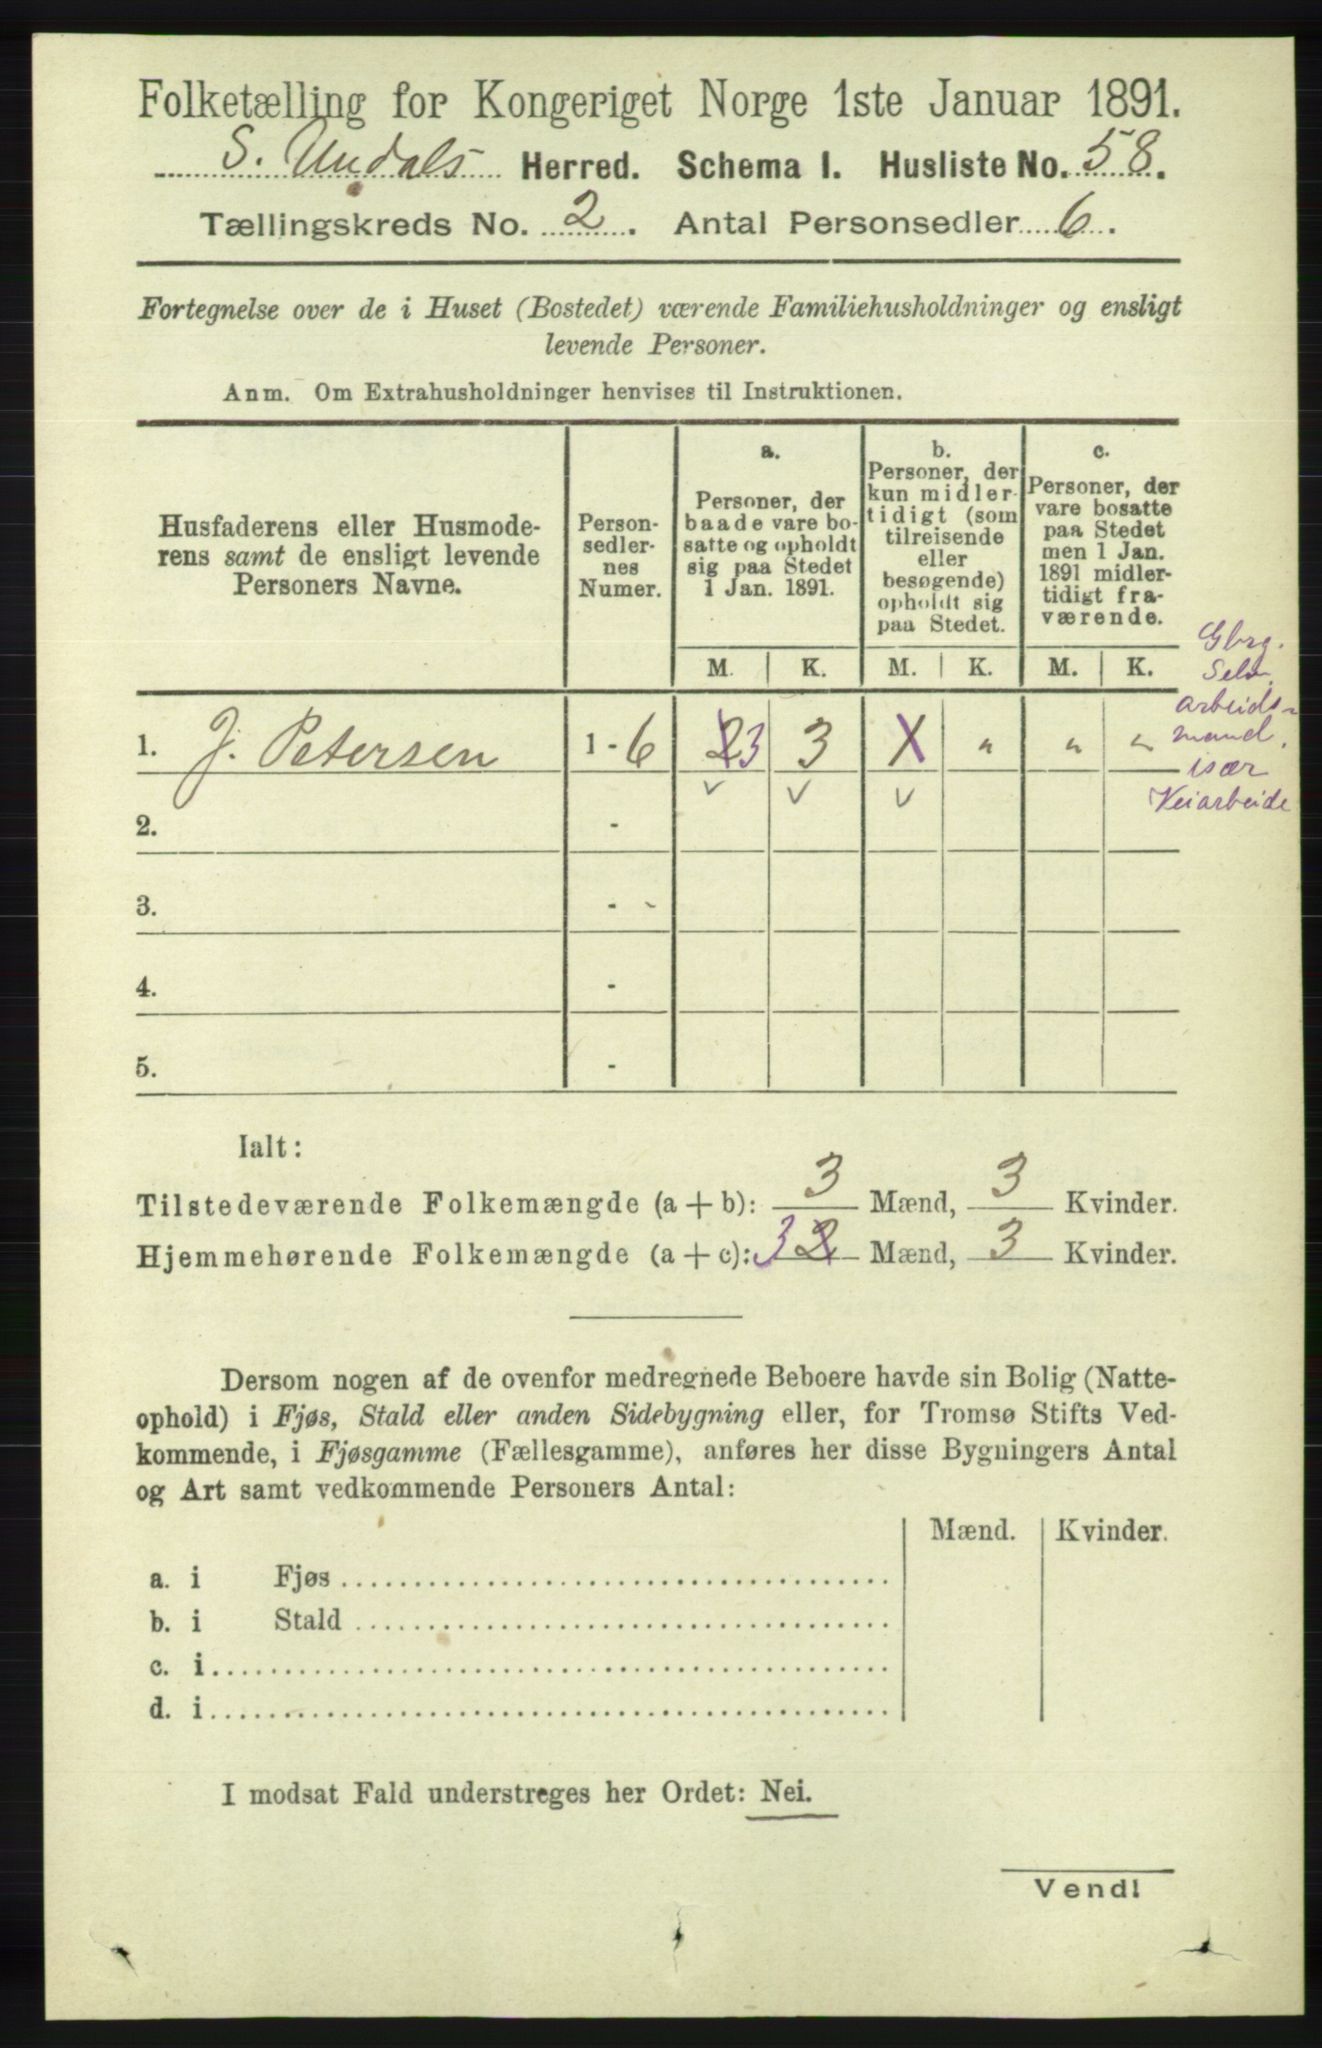 Folketælling for Kongeriget Norge 1ste Januar 1891.
S. Undals Herred. Schema I. Husliste No. 58.
Tællingskreds No. 2. Antal Personsedler 6.
Fortegnelse over de i Huset (Bostedet) værende Familiehusholdninger og ensligt
levende Personer.
Anm. Om Extrahusholdninger henvises til Instruktionen.
Husfaderens eller Husmode-
rens samt de ensligt levende
Personers Navne.
Person-
sedler-
nes
Numer.
a.
Personer, der
baade vare bo-
satte og opholdt
sig paa Stedet
1 Jan. 1891.
b.
Personer, der
kun midler-
tidigt (som
tilreisende
eller
besøgende)
opholdt sig
paa Stedet.
c.
Personer, der
vare bosatte
paa Stedet
men 1 Jan.
1891 midler-
tidigt fra-
værende.
M. K. M. K. M. K.
Gbrg.
Selv.
arbeids-
mand,
især
Veiarbeide
1. J. Petersen 1 - 6 2 3 3 1 " " "
2. -
3. -
4. -
5. -
Ialt:
Tilstedeværende Folkemængde (a + b): 3 Mænd, 3 Kvinder.
Hjemmehørende Folkemængde (a + c): 3 2 Mænd, 3 Kvinder.
Dersom nogen af de ovenfor medregnede Beboere havde sin Bolig (Natte-
ophold) i Fjøs, Stald eller anden Sidebygning eller, for Tromsø Stifts Ved-
kommende, i Fjøsgamme (Fællesgamme), anføres her disse Bygningers Antal
og Art samt vedkommende Personers Antal:
Mænd. Kvinder.
a. i Fjøs
b. i Stald
c. i
d. i
I modsat Fald understreges her Ordet: Nei.
Vend!